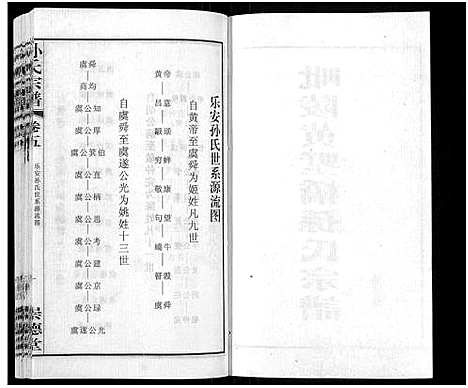 乐安孙氏世系源流图
黄帝
昌意
颛顼
穷蝉
敬康
句望
牛
瞽
虞舜
自黄帝至虞舜为姬姓凡九世
自虞舜至虞遂公光为姚姓十三世
虞舜
商均
虞公知
虞公厚
虞公箕伯
虞公直
虞公柄
虞公恩
虞公考
虞公建
虞公京
虞公绿
虞遂公光
孙氏宗谱
卷五
乐安孙氏世系源流图
崇德堂